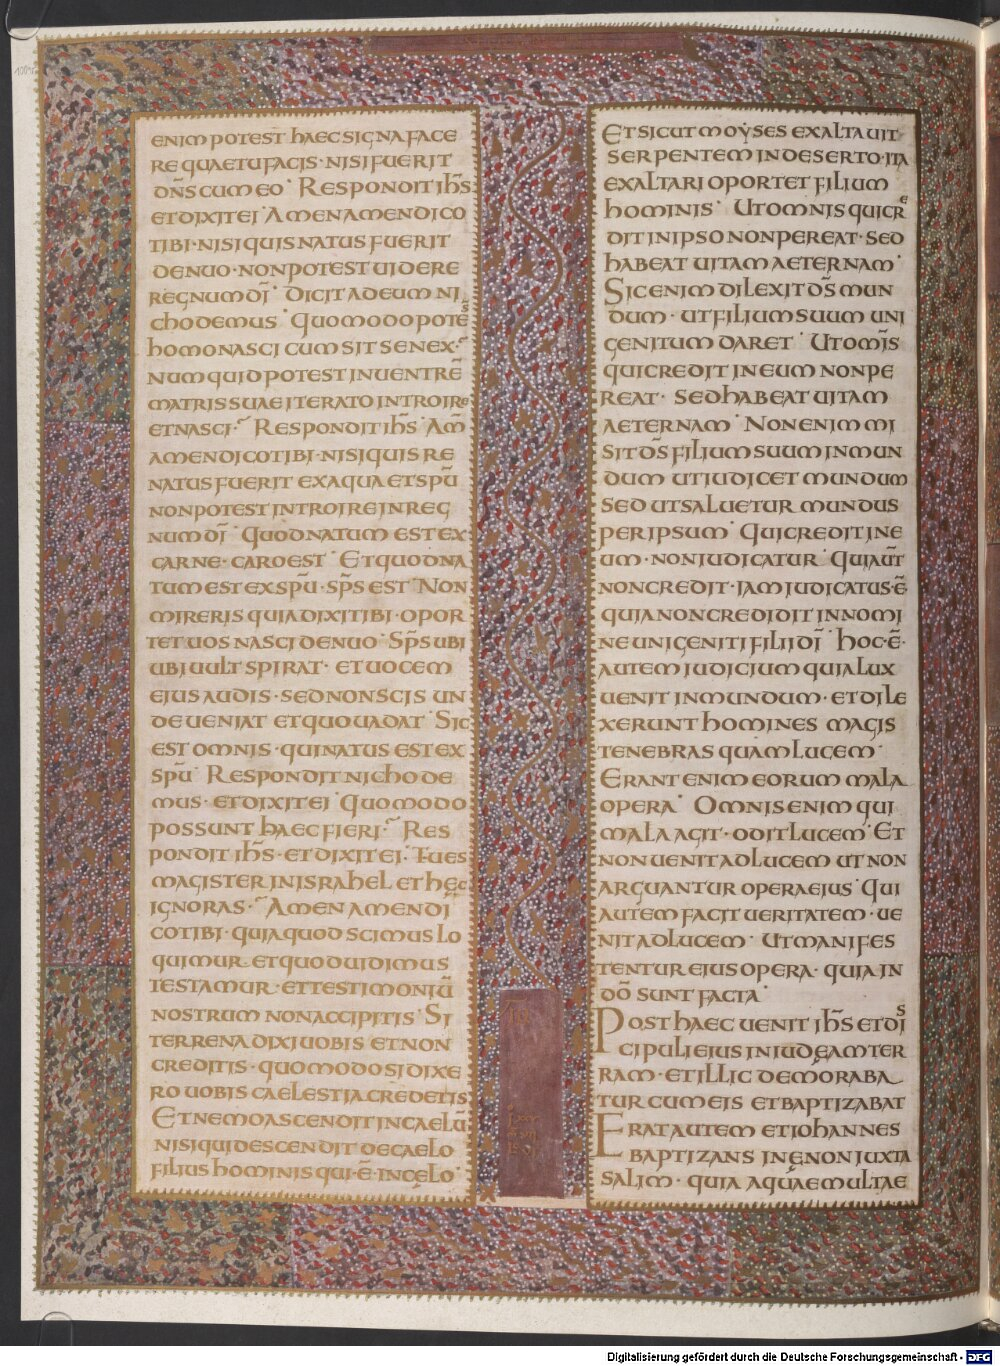 ENIM POTEST HAEC SIGNA FACE
RE QUAE TU FACIS· NISI FUERIT
DN̄S CUM EO· RESPONDIT IH̄S
ET DIXIT EI· AMEN AMEN DICO
TIBI· NISI QUIS NATUS FUERIT
DENUO· NON POTEST UIDERE
REGNUM DĪ· DICIT AD EUM NI
CHODEMUS· QUOMODO POTEST
HOMO NASCI CUM SIT SENEX·
NUMQUID POTEST IN UENTRĒ
MATRIS SUAE ITERATO INTROIRE
ET NASCI· RESPONDIT IH̄S· AM̄
AMEN DICO TIBI· NISI QUIS RE
NATUS FUERIT EX AQUA ET SPŪ
NON POTEST INTROIRE IN REG
NUM DĪ· QUOD NATUM EST EX
CARNE· CARO EST· ET QUOD NA
TUM EST EX SPŪ· SP̄S EST· NON
MIRERIS QUIA DIXI TIBI· OPOR
TET UOS NASCI DENUO· SP̄S UBI
UBI UULT SPIRAT· ET UOCEM
EIUS AUDIS· SED NON SCIS UN
DE UENIAT ET QUO UADAT· SIC
EST OMNIS· QUI NATUS EST EX
SPŪ· RESPONDIT NICHODE
MUS· ET DIXIT EI· QUOMODO
POSSUNT HAEC FIERI· RES
PONDIT IH̄S· ET DIXIT EI· TU ES
MAGISTER IN ISRAHEL ET HĘC
IGNORAS· AMEN AMEN DI
CO TIBI· QUIA QUOD SCIMUS LO
QUIMUR ET QUOD UIDIMUS
TESTAMUR· ET TESTIMONIŪ
NOSTRUM NON ACCIPITIS· SI
TERRENA DIXI UOBIS ET NON
CREDITIS· QUOMODO SI DIXE
RO UOBIS CAELESTIA CREDETIS
ET NEMO ASCENDIT IN CAELŪ
NISI QUI DESCENDIT DE CAELO
FILIUS HOMINIS QUI· Ē· IN CĘLO·
ET SICUT MOYSES EXALTAUIT
SERPENTEM IN DESERTO· ITA
EXALTARI OPORTET FILIUM
HOMINIS· UT OMNIS QUI CRE
DIT IN IPSO NON PEREAT· SED
HABEAT UITAM AETERNAM·
SIC ENIM DILEXIT DS̄ MUN
DUM· UT FILIUM SUUM UNI
GENITUM DARET· UT OMĪS
QUI CREDIT IN EUM NON PE
REAT· SED HABEAT UITAM
AETERNAM· NON ENIM MI
SIT DS̄ FILIUM SUUM IN MUN
DUM UT IUDICET MUNDUM
SED UT SALUETUR MUNDUS
PER IPSUM· QUI CREDIT IN E
UM· NON IUDICATUR· QUI AUT̄
NON CREDIT· IAM IUDICATUS· Ē·
QUIA NON CREDIDIT IN NOMI
NE UNIGENITI FILI DĪ· HOC· Ē·
AUTEM IUDICIUM QUIA LUX
UENIT IN MUNDUM· ET DILE
XERUNT HOMINES MAGIS
TENEBRAS QUAM LUCEM·
ERANT ENIM EORUM MALA
OPERA· OMNIS ENIM QUI
MALA AGIT· ODIT LUCEM· ET
NON UENIT AD LUCEM UT NON
ARGUANTUR OPERA EIUS· QUI
AUTEM FACIT UERITATEM· UE
NIT AD LUCEM· UT MANIFES
TENTUR EIUS OPERA· QUIA IN
DŌ SUNT FACTA·
POST HAEC UENIT IH̄S ET DIS
CIPULI EIUS IN IUDĘAM TER
RAM· ET ILLIC DEMORABA
TUR CUM EIS ET BAPTIZABAT
ERAT AUTEM ET IOHANNES
BAPTIZANS IN ĘNON IUXTA
SALIM· QUIA AQUAE MULTAE
Digitalisierung gefördert durch die Deutsche Forschungsgemeinschaft - DFG